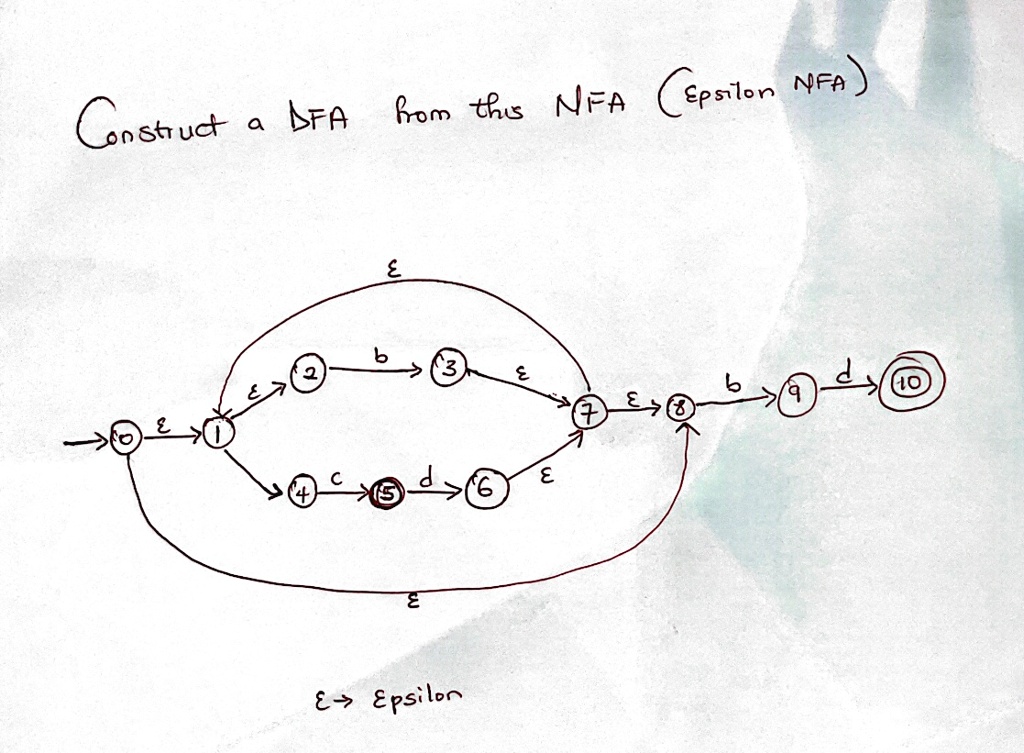 Construct a DFA from this NFA (Epsilon NFA)
ε
2 b 3 ε
ε
0 ε 1 7 ε 8 b 9 d 10
4 c 5 d 6 ε
ε
ε → Epsilon